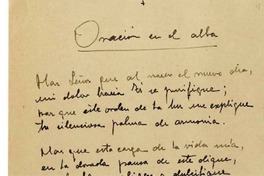 Oración en el alba
Haz Señor que al nacer el nuevo día,
mi dolor hacia Ti se purifique;
por que este orden de tu luz me explique
tu silenciosa palma de armonía.
Haz que esta carga de la vida mía,
en la dorada pausa de este dique,